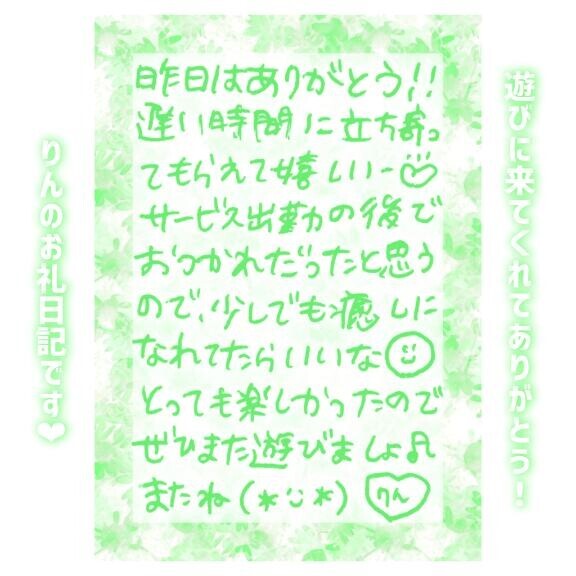 遊びに来てくれてありがとう!
昨日はありがとう!!
遅い時間に立ち寄っ
てもらえて嬉しいー♡
サービス出勤の後で
おつかれだったと思う
ので、少しでも癒しに
なれてたらいいな☺
とっても楽しかったので
ぜひまた遊びましょ♫
またね(*¨̮*) りん
りんのお礼日記です❤